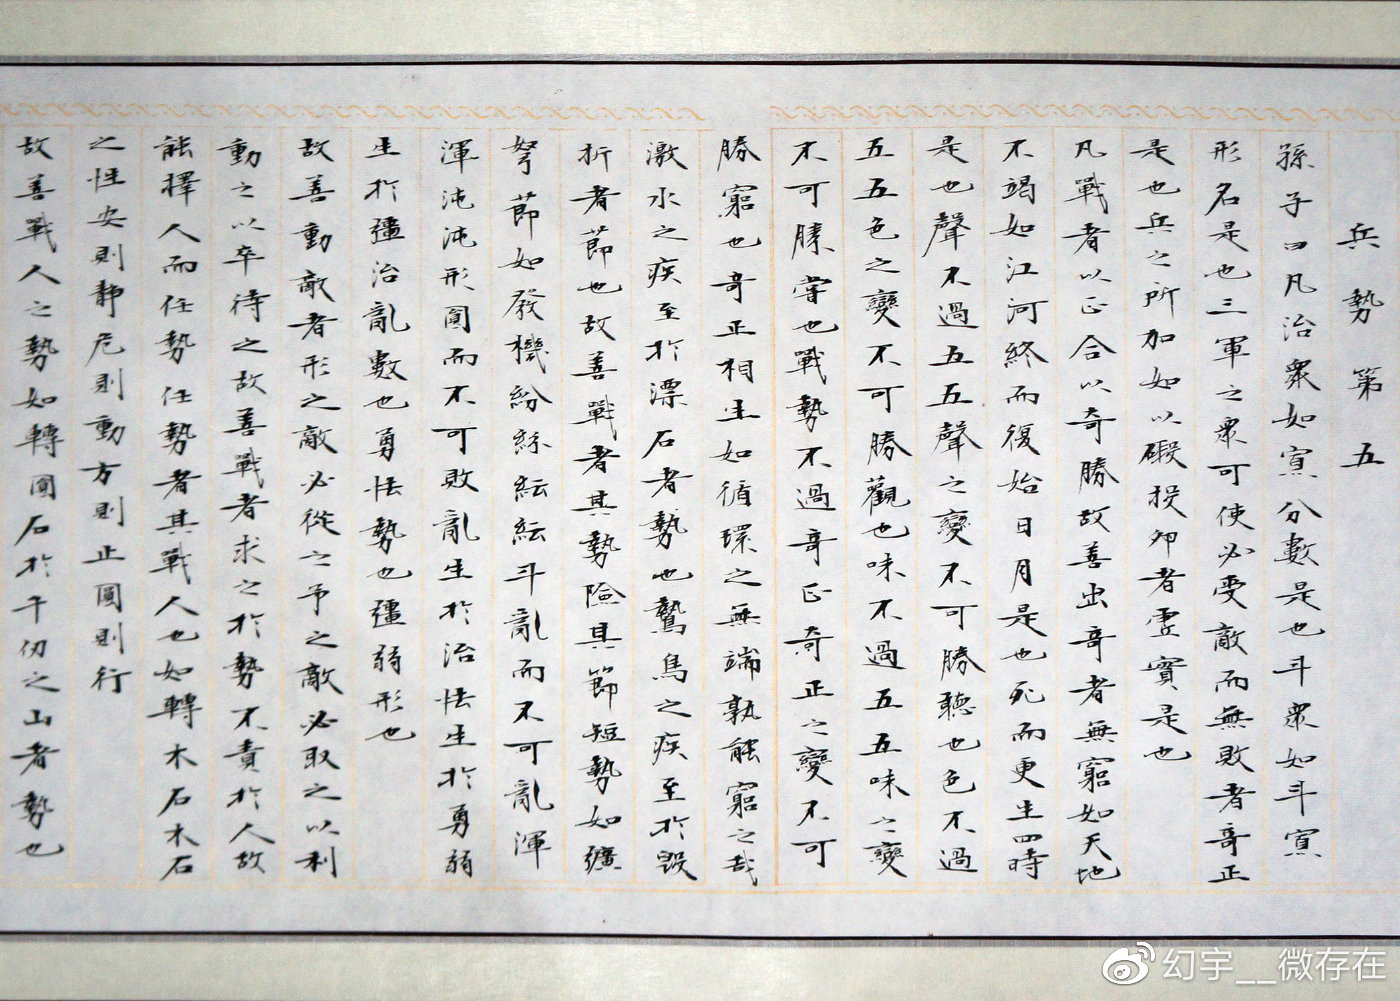 兵勢第五
孫子曰凡治衆如寡分數是也斗衆如斗寡
形名是也三軍之衆可使必受敵而無敗者奇正
是也兵之所加如以碬投卵者虛實是也
凡戰者以正合以奇勝故善出奇者無窮如天地
不竭如江河終而復始日月是也死而更生四時
是也聲不過五五聲之變不可勝聽也色不過
五五色之變不可勝觀也味不過五五味之變
不可勝嘗也戰勢不過奇正奇正之變不可
勝窮也奇正相生如循環之無端孰能窮之哉
激水之疾至於漂石者勢也鷙鳥之疾至於毀
折者節也故善戰者其勢險其節短勢如彍
弩節如發機紛紛紜紜斗亂而不可亂渾
渾沌沌形圓而不可敗亂生於治怯生於勇弱
生於彊治亂數也勇怯勢也彊弱形也
故善動敵者形之敵必從之予之敵必取之以利
動之以卒待之故善戰者求之於勢不責於人故
能擇人而任勢任勢者其戰人也如轉木石木石
之性安則靜危則動方則止圓則行
故善戰人之勢如轉圓石於千仞之山者勢也
幻宇__微存在